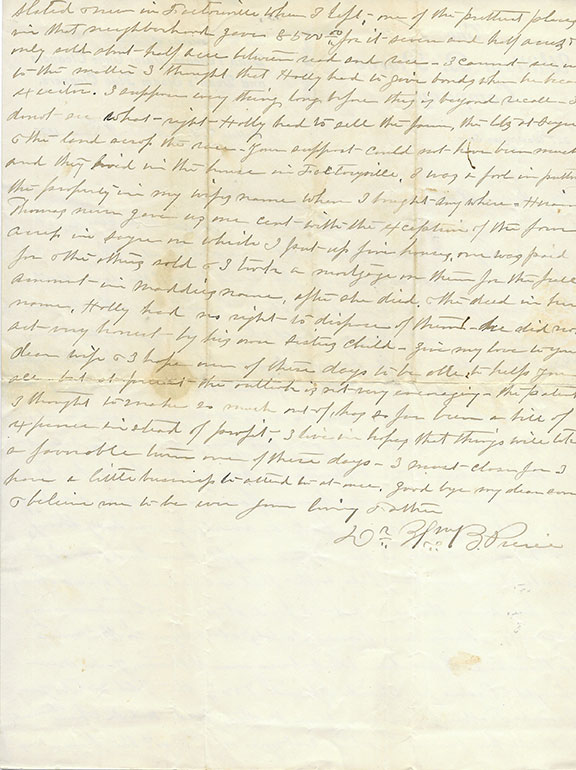 slated & new in Factoryville when I left, one of the prettiest places
in that neighborhood gave 8500 00 for it seven and half acres &
only sold about half acre between road and race. I cannot see in
to the matter I thought that Holly had to give bonds when he became
I suppose any thing long before this is beyond recall
do not see what right Holly had to sell the farm, the lots at Sayre
& the land across the race. Your support could not have been much
and they lived in the house in Factoryville. I was a fool in putting
the property in my wifes name when I bought any where. Hiram
Thomas never gave us one cent with the exception of the four
acres in Sayre on which I put up five houses, one was paid
for & the others sold & I took a mortgage on them for the full
amount in name, after she died, & the deed in her
name, Holly had no right to dispose of them. he did not
act very honest by his own sisters child. Give my love to your
dear wife & I hope one of these days to be able to help you
but at present the outlook is not very encouraging. the patent
I thought to make so much out of has so far been a bill of
expense instead of profit. I live in hopes that things will take
a favorable turn one of these days. I must close for I
have a little business to attend to at once, good bye my dear son
& believe me to be ever your loving Father
Dr. Wm B.